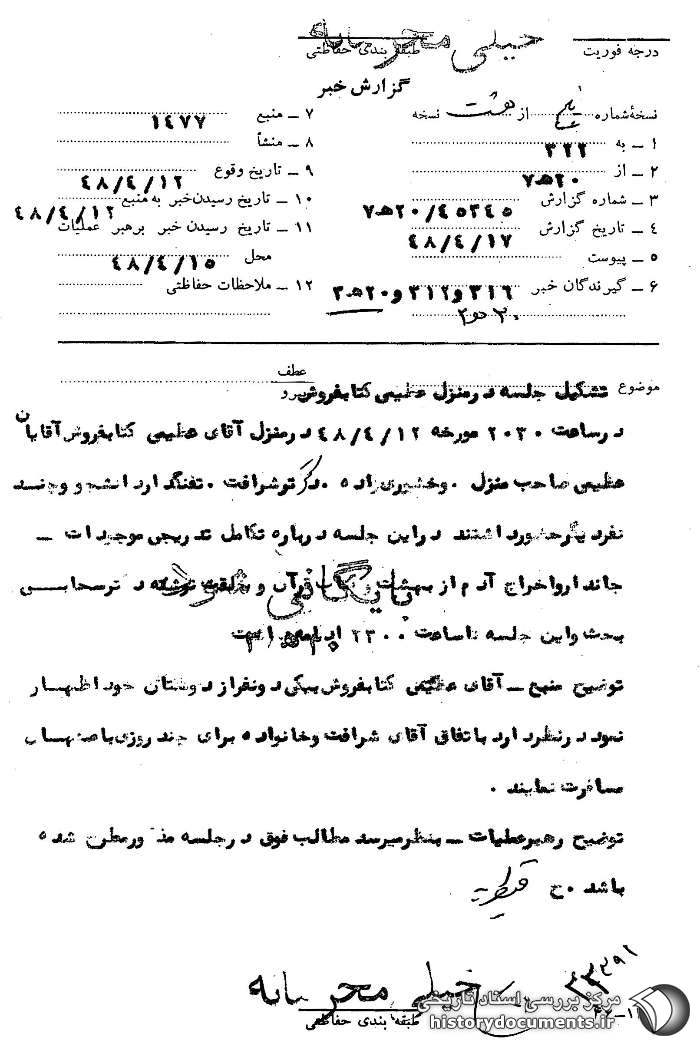 خیلی محرمانه
درجه فوریت
طبقه بندی حفاظتی
گزارش خبر
نسخهٔ شماره پنج از هشت نسخه
۱ ــ به ۳۲۲
۲ ــ از ۲۰هـ۷
۳ ــ شماره گزارش ۲۰/۴۵۳۴۵هـ۷
۴ ــ تاریخ گزارش ۴۸/۴/۱۷
۵ ــ پیوست
۶ ــ گیرندگان خبر ۳۱۶ و ۳۱۲ و ۲۰هـ۳
۷ ــ منبع ۱۴۷۷
۸ ــ منشأ
۹ ــ تاریخ وقوع ۴۸/۴/۱۲
۱۰ ــ تاریخ رسیدن خبر به منبع ۴۸/۴/۱۲
۱۱ ــ تاریخ رسیدن خبر برهبر عملیات
محل ۴۸/۴/۱۵
۱۲ ــ ملاحظات حفاظتی
عطف
موضوع تشکیل جلسه در منزل عظیمی کتابفروش
در ساعت ۲۰۳۰ مورخه ۴۸/۴/۱۲ در منزل آقای عظیمی کتابفروش آقایان
عظیمی صاحب منزل . وخشوری زاده . دکتر شرافت . تفنگدار دانشجو و چند
نفر دیگر حضور داشتند در این جلسه درباره تکامل تدریجی موجودات ــ
جاندار و اخراج آدم از بهشت و کتاب قرآن و خلقت نوشته دکتر سحابی
بحث و این جلسه تا ساعت ۲۳۰۰ ادامه داشت
بایگانی شود
توضیح منبع ــ آقای عظیمی کتابفروش بیکی دو نفر از دوستان خود اظهار
نمود در نظر دارد باتفاق آقای شرافت و خانواده برای چند روزی باصفهان
مسافرت نمایند .
توضیح رهبر عملیات ــ بنظر میرسد مطالب فوق در جلسه مذکور مطرح شده
باشد . ح
خیلی محرمانه
طبقه بندی حفاظتی
مرکز بررسی اسناد تاریخی
historydocuments.ir